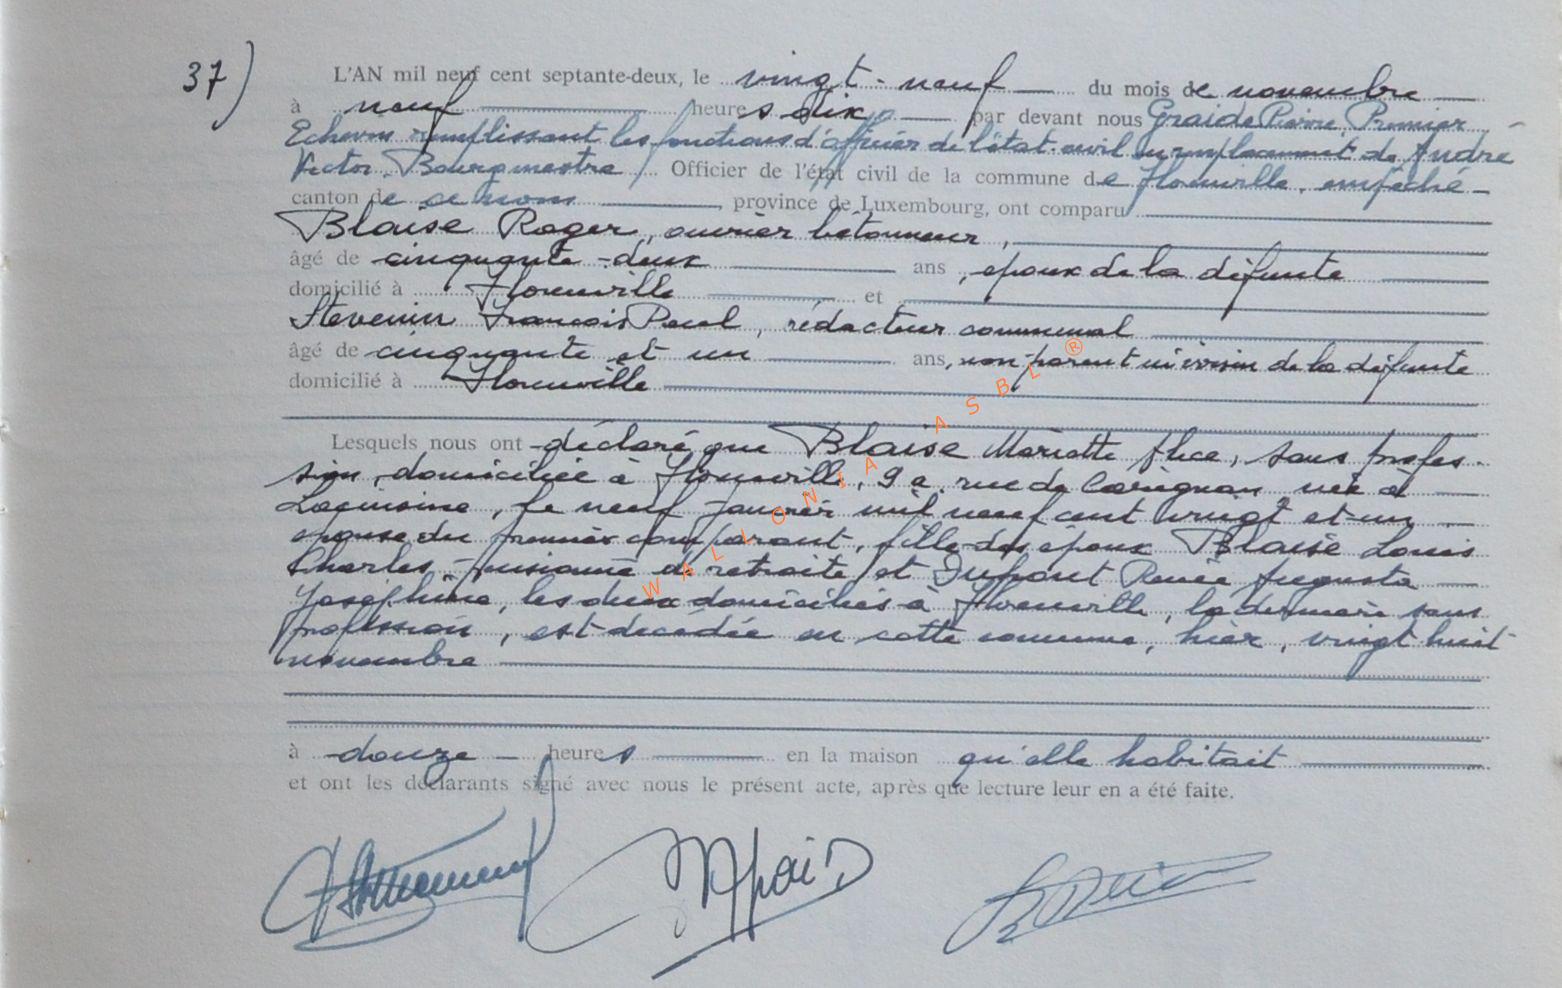 37)
L'AN mil neuf cent septante-deux, le vingt-neuf du mois de novembre
à neuf heures dix par devant nous Graide Pierre, Premier
Echevin remplissant les fonctions d'officier de l'état civil en remplacement de André
Victor, Bourgmestre, Officier de l'état civil de la commune de Florenville, empêché
canton de ce nom province de Luxembourg, ont comparu
Blaise Roger, ouvrier bétonneur,
âgé de cinquante-deux ans, époux de la défunte
domicilié à Florenville et
Stevenin François Paul, rédacteur communal
âgé de cinquante et un ans, non parent ni voisin de la défunte
domicilié à Florenville
Lesquels nous ont déclaré que Blaise Mariette Alice, sans profes-
sion, domiciliée à Florenville, 9a, rue de Carignan née à
Lacuisine, le neuf janvier mil neuf cent vingt et un
épouse du premier comparant, fille des époux Blaise Louis
Charles, pensionné de retraite et Dupont Renée Augusta
Joséphine, les deux domiciliés à Florenville, la dernière sans
profession, est décédée en cette commune, hier, vingt huit
novembre
à douze heures en la maison qu'elle habitait
et ont les déclarants signé avec nous le présent acte, après que lecture leur en a été faite.
WALLONIA ASBL ®